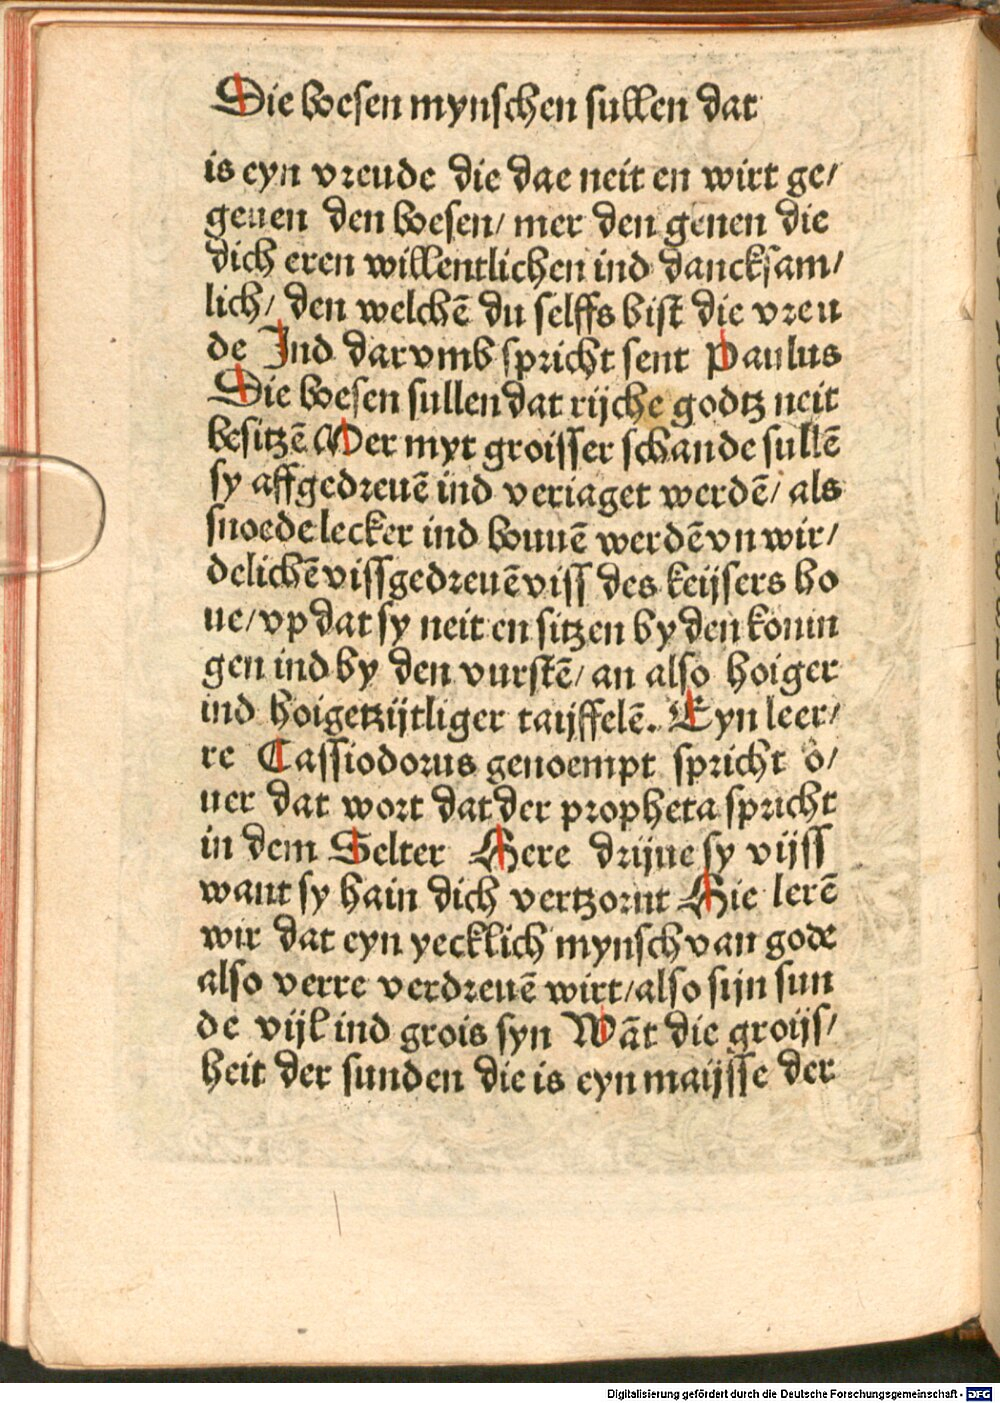 Die boesen mynschen sullen dat
is eyn vreude die dae neit en wirt ge/
geuen den boesen/ mer den genen die
dich eren willentlichen ind dancksam/
lich/ den welchē du selffs bist die vreu
de Ind darvmb spricht sent Paulus
Die boesen sullen dat rijche godtz neit
besitzē Mer myt groisser schande sullē
sy affgedreuē ind veriaget werdē/ als
snoede lecker ind bouuē werdē vn wir/
delichē vissgedreuē viss des keijsers ho
ue/ vp dat sy neit en sitzen by den konin
gen ind by den vurstē/ an also hoiger
ind hoigetzijtliger taijffelē. Eyn leer/
re Cassiodorus genoempt spricht o/
uer dat wort dat der propheta spricht
in dem Selter Here drijue sy vijss
want sy hain dich vertzornt Hie lerē
wir dat eyn yecklich mynsch van gode
also verre verdreuē wirt/ also sijn sun
de vijl ind grois syn Wāt die groijs/
heit der sunden die is eyn maijsse der
Digitalisierung gefördert durch die Deutsche Forschungsgemeinschaft - DFG